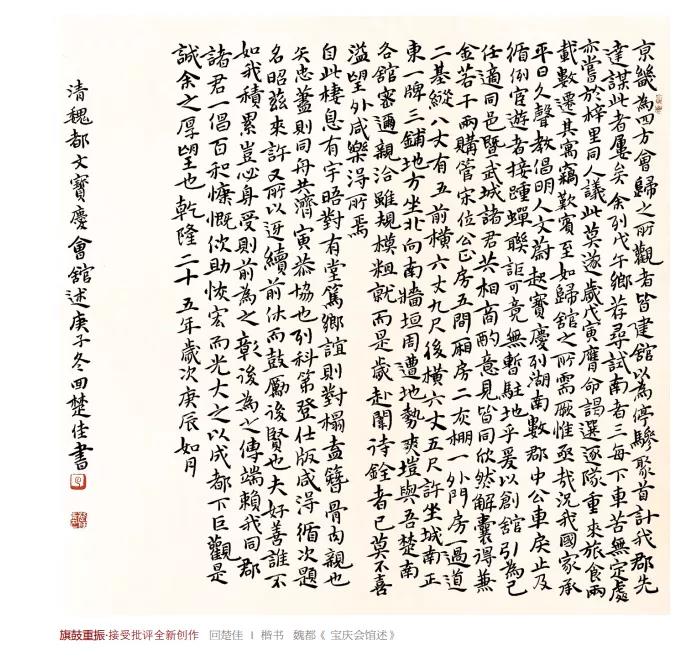 京畿為四方會歸之所觀者皆建館以為停驂聚首計我郡先
達謀此者屢矣余列戊午鄉荐尋試南者三每下車苦無定處
亦嘗於梓里同人議此莫遂歲戊寅膺命謁選逐隊重來旅食兩
載數遷其寓竊歎賓至如歸館之所需厥惟亟哉況我國家承
平日久聲教倡明人文蔚起寶慶列湖南數郡中公車戾止及
循例宦遊者接踵蟬聯詎可竟無暫駐地乎爰以創館引為己
任適同邑暨武城諸君共相商酌意見皆同欣然解囊得兼
金若干兩購管宋位公正房五間廂房二灰棚一外門房一過道
二基縱八丈有五前橫六丈九尺後橫六丈五尺許坐城南正
東一牌三鋪地方坐北向南牆垣周遭地勢爽塏與吾楚南
各館密邇親洽雖規模粗就而是歲赴闈待銓者已莫不喜
溢望外咸樂得所焉
自此棲息有宇晤對有堂篤鄉誼則對榻盍簪骨肉親也
矢忠藎則同舟共濟寅恭協也列科第登仕版咸得循次題
名昭茲來許又所以迓續前休而鼓勵後賢也夫好善誰不
如我積累豈必身受則前為之彰後為之傳端賴我同郡
諸君一倡百和慷慨佽助恢宏而光大之以成都下巨觀是
誠余之厚望也乾隆二十五年歲次庚辰如月
清魏都文寶慶會館述庚子冬回楚佳書
旗鼓重振·接受批评全新创作 回楚佳 | 楷书 魏都《宝庆会馆述》